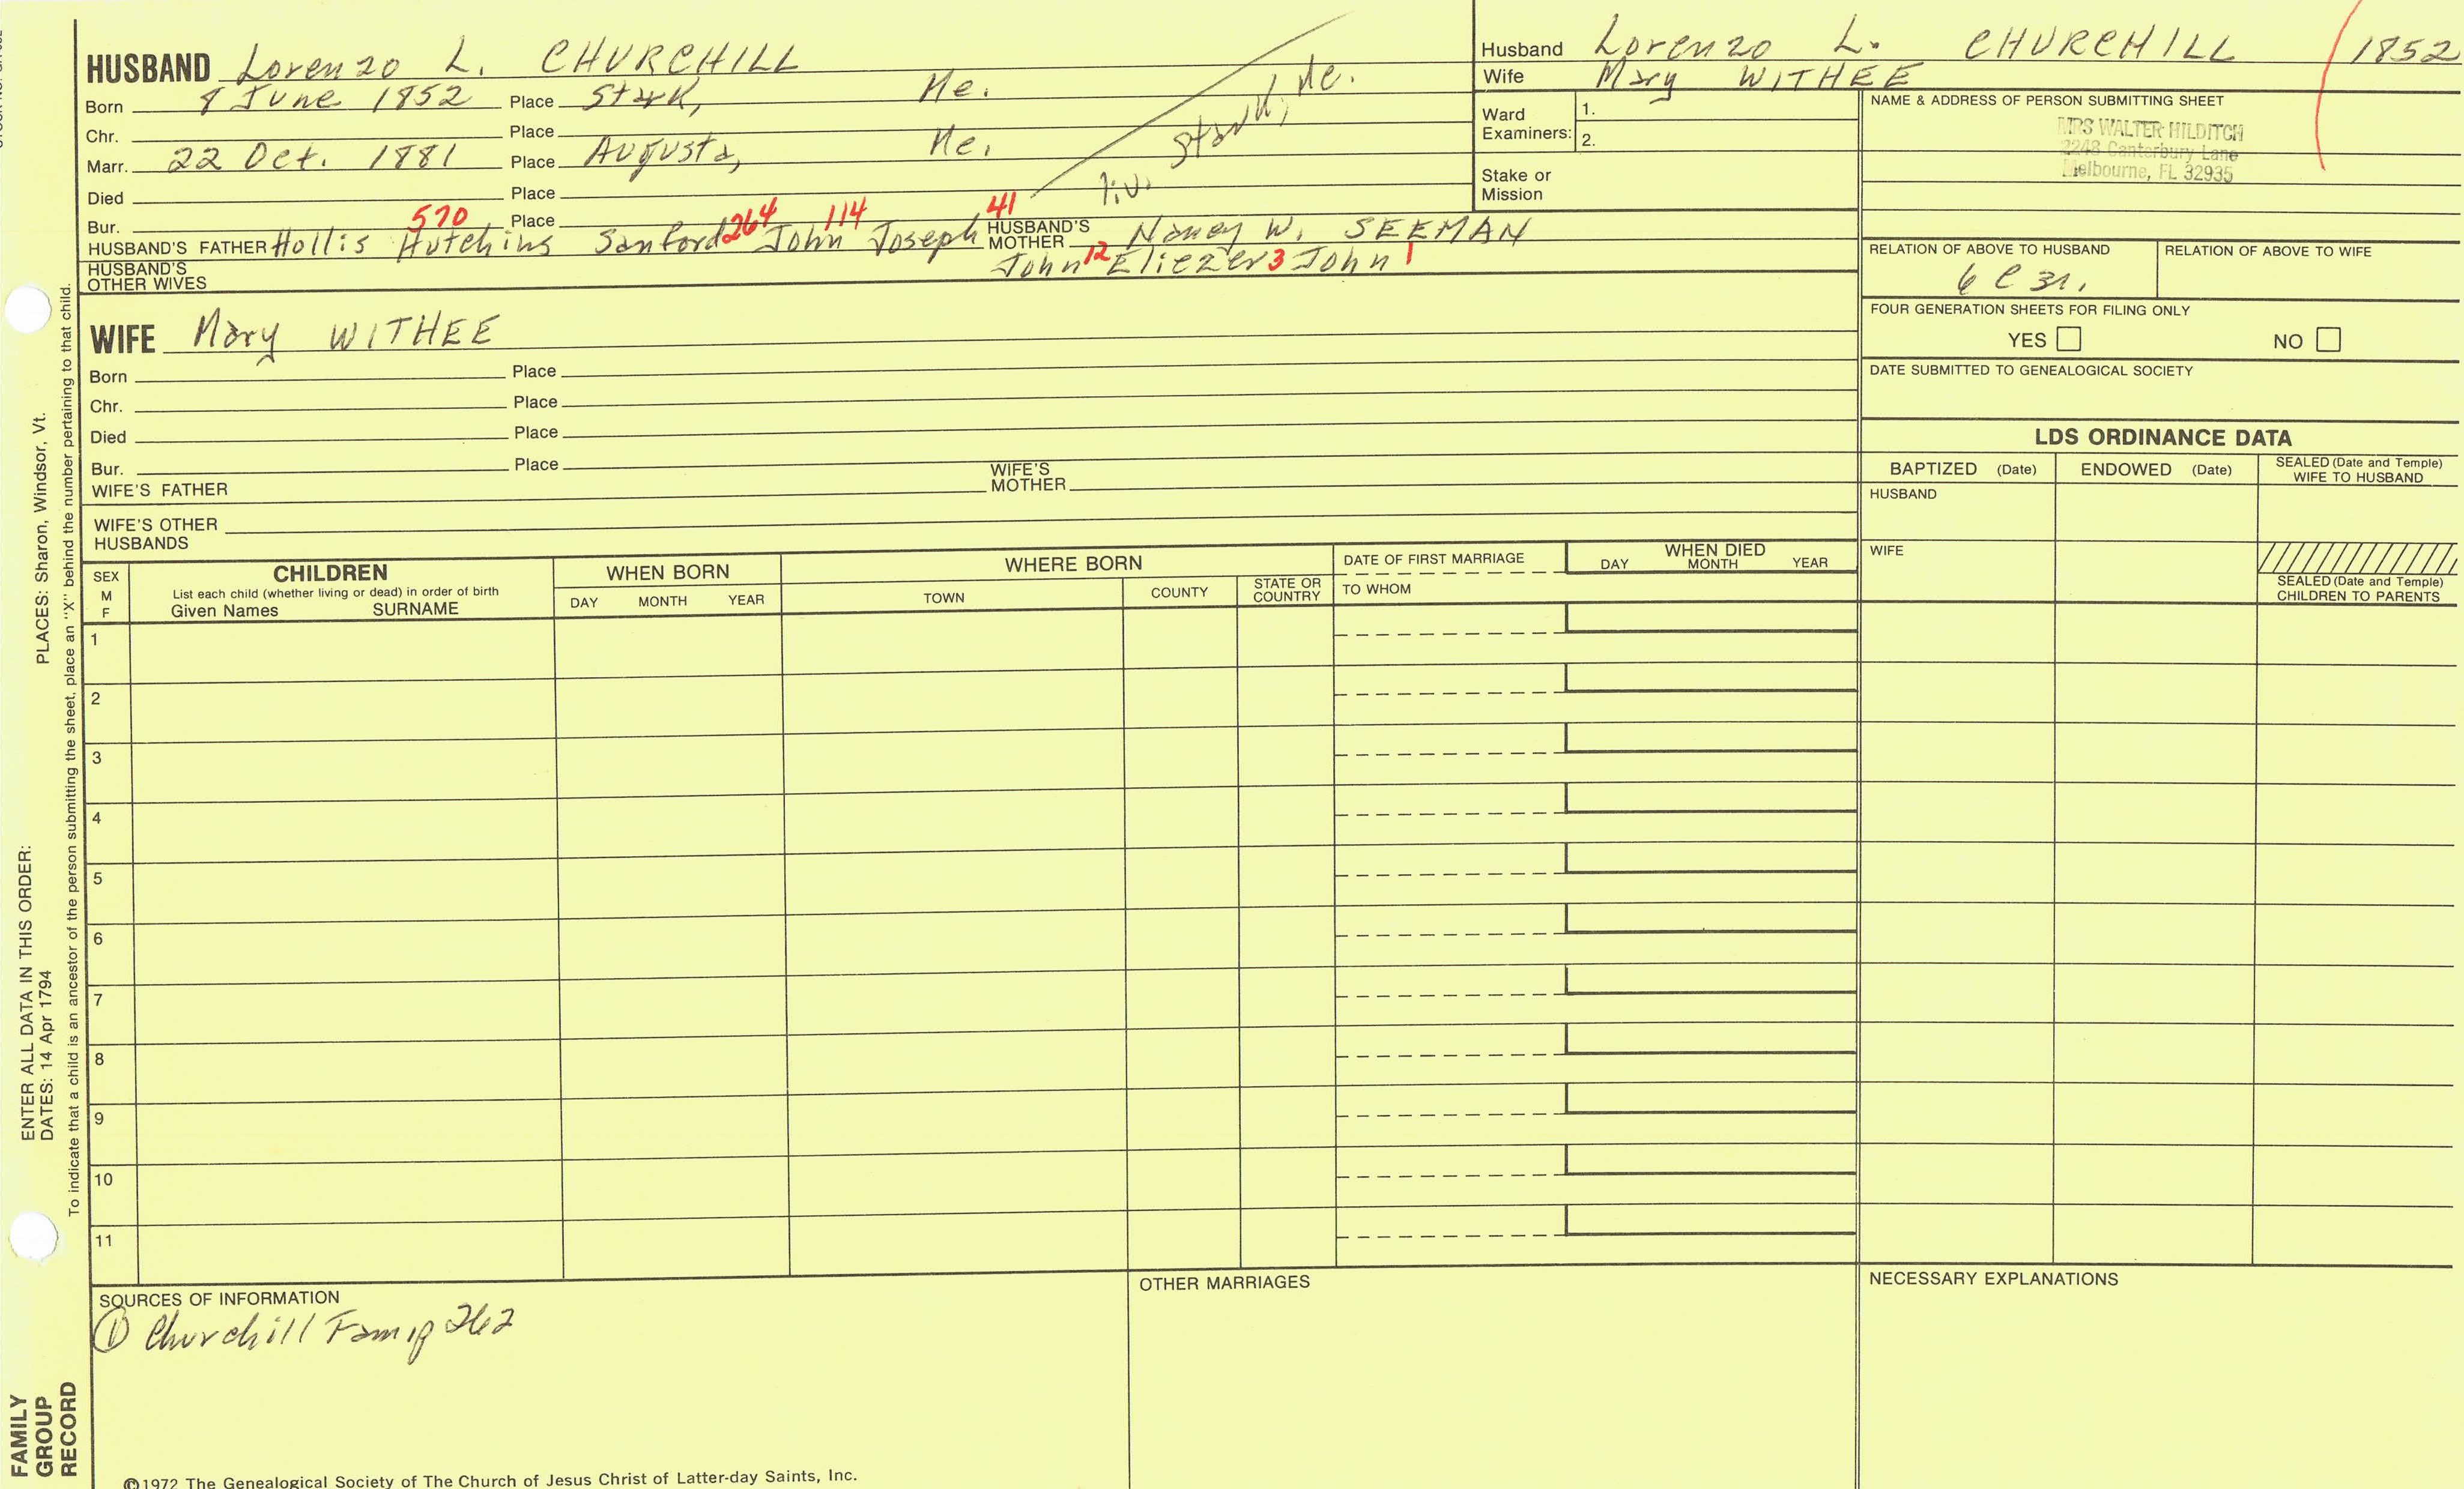 HUSBAND Lorenzo L. CHURCHILL
Born 8 June 1852 Place Stark, Me.
Chr. Place
Marr. 22 Oct. 1881 Place Augusta, Me.
liv. Stark, Me.
Died Place
Bur. Place
HUSBAND'S FATHER Hollis Hutchins 570 Sanford 264 John 114 Joseph 41 HUSBAND'S MOTHER Nancy W. SEEMAN
John 12 Eliezer 3 John 1
HUSBAND'S OTHER WIVES
Husband Lorenzo L. CHURCHILL 1852
Wife Mary WITHEE
Ward Examiners: 1.
2.
Stake or Mission
NAME & ADDRESS OF PERSON SUBMITTING SHEET
MRS WALTER HILDITCH
2248 Canterbury Lane
Melbourne, FL 32935
RELATION OF ABOVE TO HUSBAND RELATION OF ABOVE TO WIFE
FOUR GENERATION SHEETS FOR FILING ONLY
YES NO
DATE SUBMITTED TO GENEALOGICAL SOCIETY
WIFE Mary WITHEE
Born Place
Chr. Place
Died Place
Bur. Place
WIFE'S FATHER WIFE'S MOTHER
WIFE'S OTHER HUSBANDS
LDS ORDINANCE DATA
BAPTIZED (Date) ENDOWED (Date) SEALED (Date and Temple) WIFE TO HUSBAND
HUSBAND
WIFE
SEALED (Date and Temple) CHILDREN TO PARENTS
SEX M F
CHILDREN
List each child (whether living or dead) in order of birth
Given Names SURNAME
WHEN BORN
DAY MONTH YEAR
WHERE BORN
TOWN COUNTY STATE OR COUNTRY
DATE OF FIRST MARRIAGE
TO WHOM
WHEN DIED
DAY MONTH YEAR
1
2
3
4
5
6
7
8
9
10
11
SOURCES OF INFORMATION
① Churchill Fam p 262
OTHER MARRIAGES
NECESSARY EXPLANATIONS
©1972 The Genealogical Society of The Church of Jesus Christ of Latter-day Saints, Inc.
FAMILY GROUP RECORD
ENTER ALL DATA IN THIS ORDER:
DATES: 14 Apr 1794 PLACES: Sharon, Windsor, Vt.
To indicate that a child is an ancestor of the person submitting the sheet, place an "X" behind the number pertaining to that child.